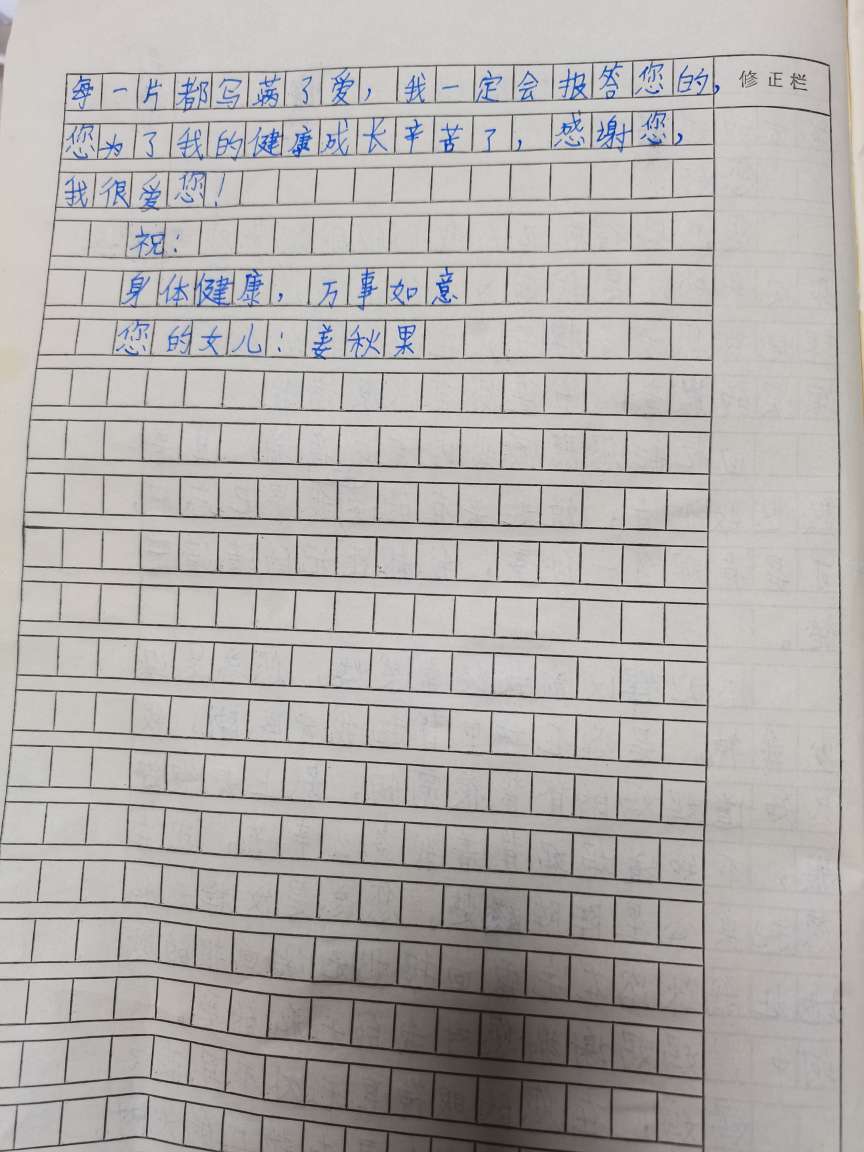 每一片都写满了爱，我一定会报答您的，
修正栏
您为了我的健康成长辛苦了，感谢您，
我很爱您！
祝：
身体健康，万事如意
您的女儿：姜秋果